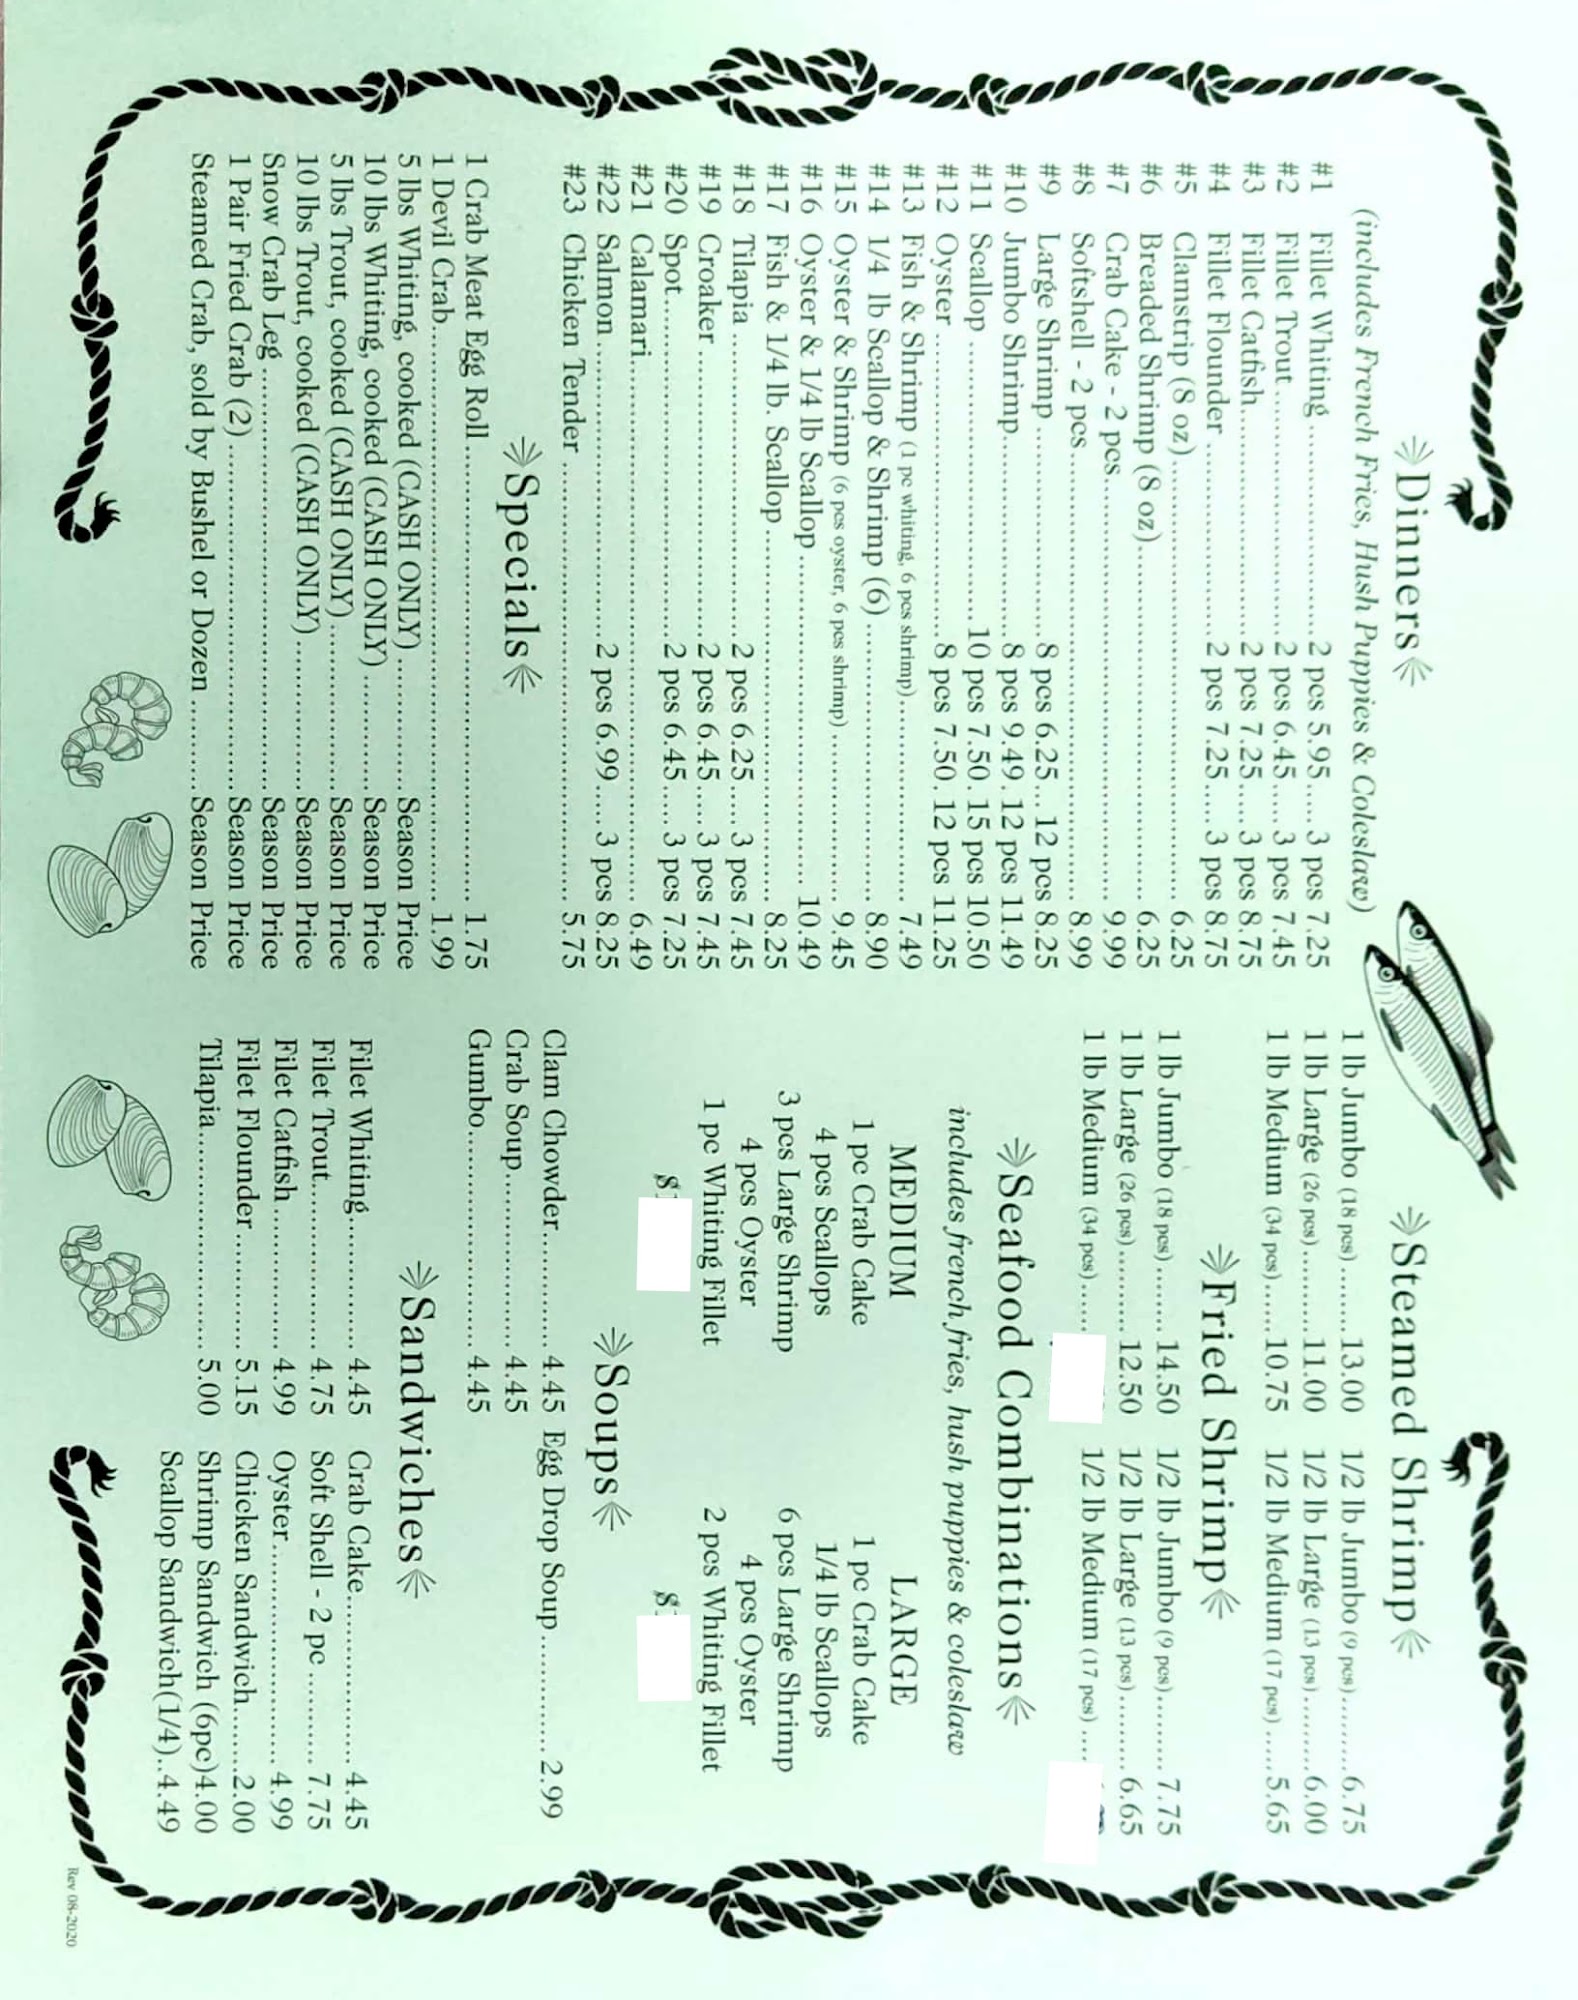 Dinners
(includes French Fries, Hush Puppies & Coleslaw)
#1 Fillet Whiting ........ 2 pcs 5.95.... 3 pcs 7.25
#2 Fillet Trout ........ 2 pcs 6.45.... 3 pcs 7.45
#3 Fillet Catfish ........ 2 pcs 7.25.... 3 pcs 8.75
#4 Fillet Flounder ........ 2 pcs 7.25.... 3 pcs 8.75
#5 Clamstrip (8 oz) ........ 6.25
#6 Breaded Shrimp (8 oz) ........ 6.25
#7 Crab Cake - 2 pcs ........ 9.99
#8 Softshell - 2 pcs ........ 8.99
#9 Large Shrimp ........ 8 pcs 6.25... 12 pcs 8.25
#10 Jumbo Shrimp ........ 8 pcs 9.49. 12 pcs 11.49
#11 Scallop ........ 10 pcs 7.50. 15 pcs 10.50
#12 Oyster ........ 8 pcs 7.50. 12 pcs 11.25
#13 Fish & Shrimp (1 pc whiting, 6 pcs shrimp) ........ 7.49
#14 1/4 lb Scallop & Shrimp (6) ........ 8.90
#15 Oyster & Shrimp (6 pcs oyster, 6 pcs shrimp) ........ 9.45
#16 Oyster & 1/4 lb Scallop ........ 10.49
#17 Fish & 1/4 lb. Scallop ........ 8.25
#18 Tilapia ........ 2 pcs 6.25.... 3 pcs 7.45
#19 Croaker ........ 2 pcs 6.45.... 3 pcs 7.45
#20 Spot ........ 2 pcs 6.45.... 3 pcs 7.25
#21 Calamari ........ 6.49
#22 Salmon ........ 2 pcs 6.99.... 3 pcs 8.25
#23 Chicken Tender ........ 5.75
Specials
1 Crab Meat Egg Roll ........ 1.75
1 Devil Crab ........ 1.99
5 lbs Whiting, cooked (CASH ONLY) ........ Season Price
10 lbs Whiting, cooked (CASH ONLY) ........ Season Price
5 lbs Trout, cooked (CASH ONLY) ........ Season Price
10 lbs Trout, cooked (CASH ONLY) ........ Season Price
Snow Crab Leg ........ Season Price
1 Pair Fried Crab (2) ........ Season Price
Steamed Crab, sold by Bushel or Dozen ........ Season Price
Steamed Shrimp
1 lb Jumbo (18 pcs) ........ 13.00 1/2 lb Jumbo (9 pcs) ........ 6.75
1 lb Large (26 pcs) ........ 11.00 1/2 lb Large (13 pcs) ........ 6.00
1 lb Medium (34 pcs) ...... 10.75 1/2 lb Medium (17 pcs) ..... 5.65
Fried Shrimp
1 lb Jumbo (18 pcs) ....... 14.50 1/2 lb Jumbo (9 pcs) ....... 7.75
1 lb Large (26 pcs) ........ 12.50 1/2 lb Large (13 pcs) ........ 6.65
1 lb Medium (34 pcs) ..... 1/2 lb Medium (17 pcs) ....
Seafood Combinations
includes french fries, hush puppies & coleslaw
MEDIUM
1 pc Crab Cake
4 pcs Scallops
3 pcs Large Shrimp
4 pcs Oyster
1 pc Whiting Fillet
$
LARGE
1 pc Crab Cake
1/4 lb Scallops
6 pcs Large Shrimp
4 pcs Oyster
2 pcs Whiting Fillet
$
Soups
Clam Chowder ........ 4.45 Egg Drop Soup ........ 2.99
Crab Soup ........ 4.45
Gumbo ........ 4.45
Sandwiches
Filet Whiting ........ 4.45 Crab Cake ........ 4.45
Filet Trout ........ 4.75 Soft Shell - 2 pc ........ 7.75
Filet Catfish ........ 4.99 Oyster ........ 4.99
Filet Flounder ........ 5.15 Chicken Sandwich ...... 2.00
Tilapia ........ 5.00 Shrimp Sandwich (6pc)4.00
Scallop Sandwich(1/4)..4.49
Rev 08-2020